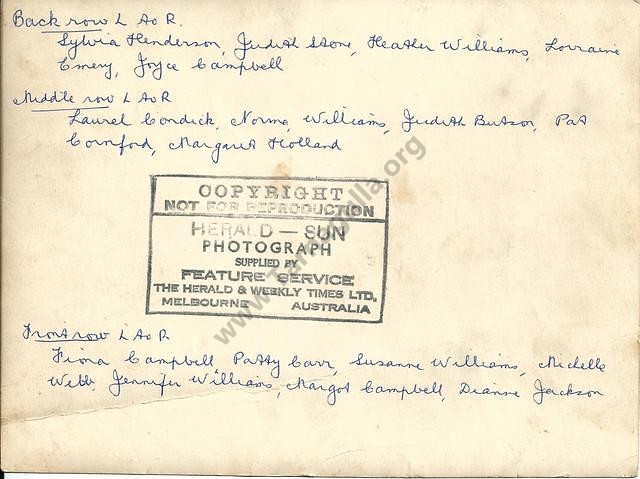 Back row L to R.
Sylvia Henderson, Judith Stone, Heather Williams, Lorraine
Emery, Joyce Campbell
Middle row L to R
Laurel Condick, Norma Williams, Judith Butson, Pat
Cornford, Margaret Holland
COPYRIGHT
NOT FOR REPRODUCTION
HERALD — SUN
PHOTOGRAPH
SUPPLIED BY
FEATURE SERVICE
THE HERALD & WEEKLY TIMES LTD.
MELBOURNE AUSTRALIA
Front row L to R.
Fiona Campbell, Patty Carr, Susanne Williams, Michelle
Webb, Jennifer Williams, Margot Campbell, Dianne Jackson